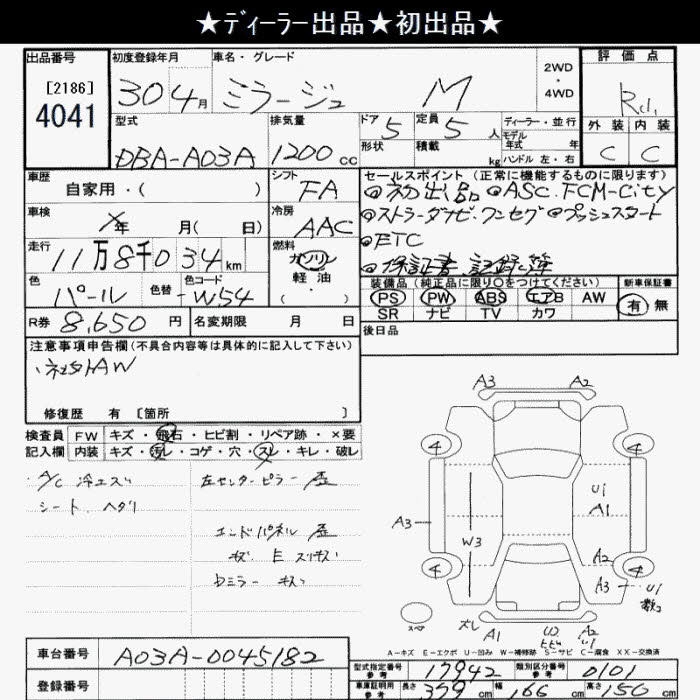 ★ディーラー出品★初出品★
出品番号
[2186]
4041
初度登録年月
30年4月
車名・グレード
ミラージュ M
2WD
・
4WD
評価点
R.1.
外装 内装
C C
型式
DBA-A03A
排気量
1200cc
ドア 5
定員 5人
形状
積載 kg
ディーラー・並行
モデル年式 年
ハンドル 左・右
車歴
自家用・( )
シフト FA
車検
年 月( 日)
冷房 AAC
走行
11万8千034km
燃料
ガソリン
軽油
( ・ )
色 パール
色替
色コード W54
R券 8,650円
名変期限 月 日
セールスポイント(正常に機能するものに限ります)
◎初出品 ◎ASC.FCM-City
◎ストラーダナビ.ワンセグ ◎プッシュスタート
◎ETC
◎保証書 記録簿
装備品(純正品に限り○をつけてください)
PS PW ABS エアB AW
SR ナビ TV カワ
新車保証書
有 無
後日品
注意事項申告欄(不具合内容等は具体的に記入して下さい)
社外AW
修復歴 有[箇所 ]
検査員記入欄
FW キズ・飛石・ヒビ割・リペア跡・×要
内装 キズ・汚レ・コゲ・穴・スレ・キレ・破レ
A/C 冷エズ
シート ヘタリ
左センターピラー 歪
エンドパネル 歪
キズ E スリキズ
Dミラー キズ
A3 A2
4 4
A3
W3
U1
A1
A2
4 4
A3 U1
数コ
スペア
A1 A2
A-キズ E-エクボ U-凹み W-補修跡 S-サビ C-腐食 XX-交換済
車台番号 A03A-0045182
登録番号
型式指定番号 参考 17942
類別区分番号 参考 0101
車庫証明用 参考 長さ 379cm 幅 166cm 高さ 150cm